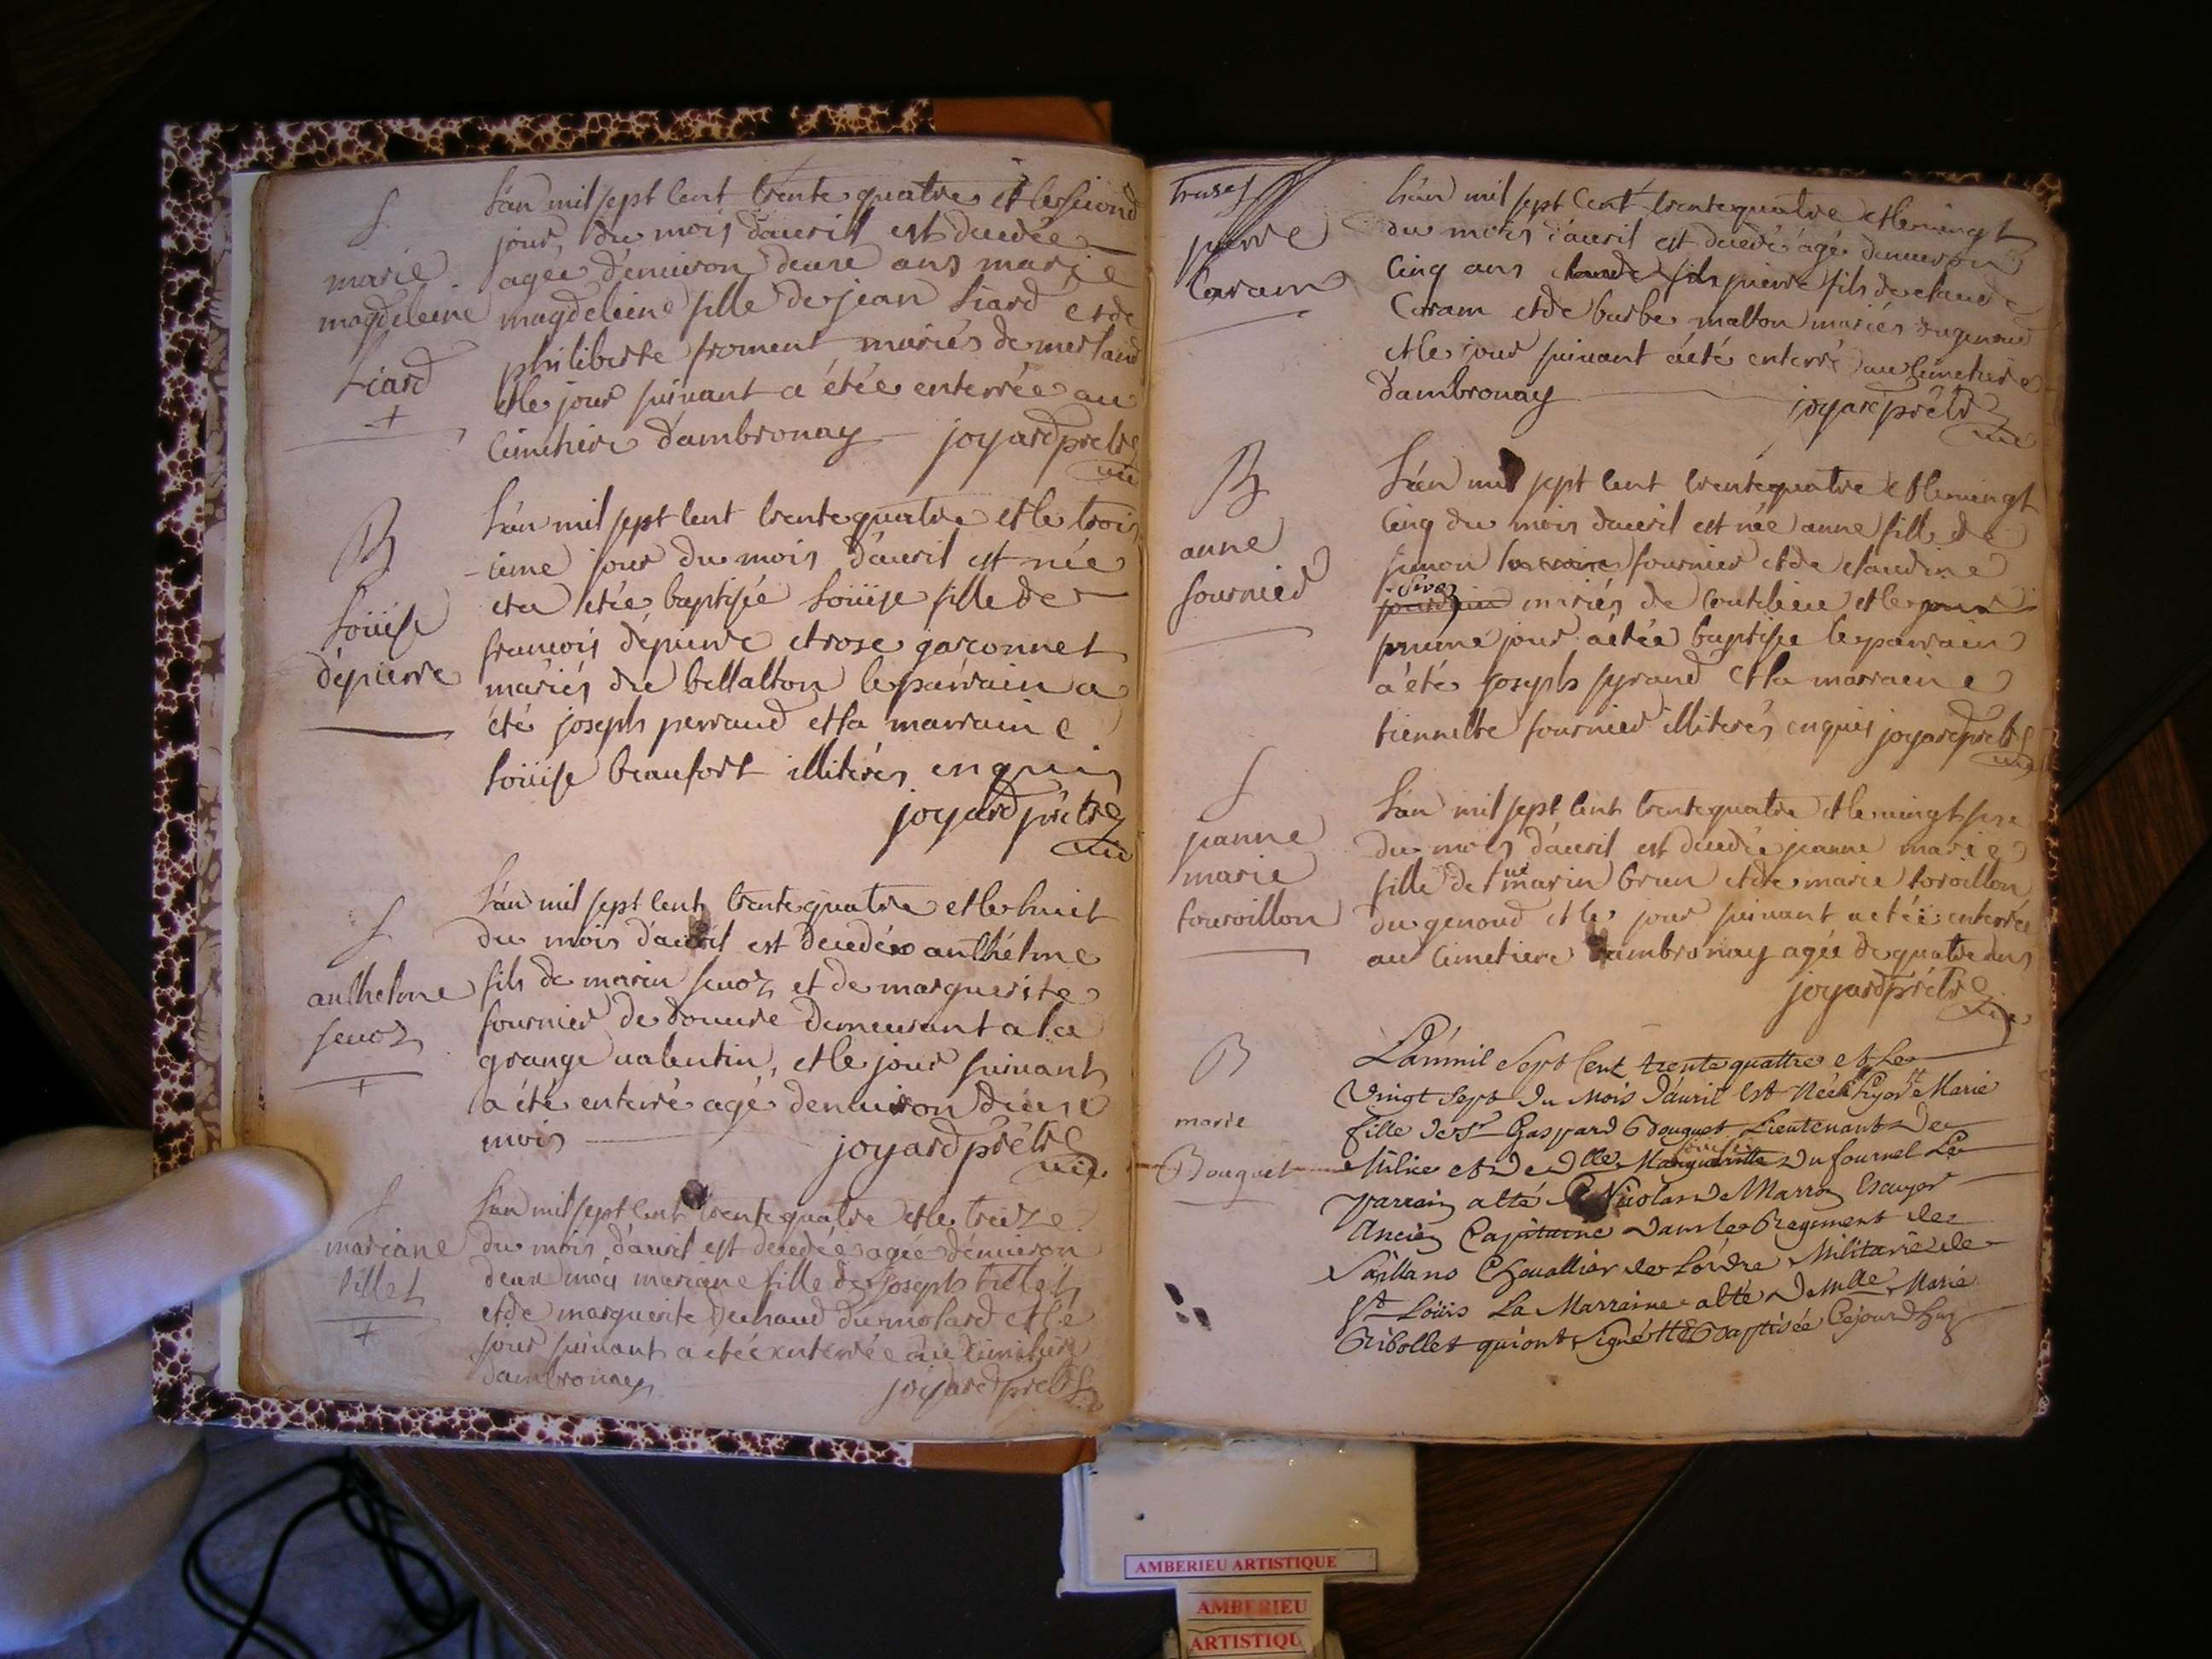 S
marie
magdeleine
Liard
+
L'an mil sept cent trente quatre et le second
jour du mois d'auril est decedée
agée d'enuiron deux ans marie
magdeleine fille de jean Liard et de
philiberte froment mariés de merland
et le jour suiuant a étée enterrée au
cimetiere d'ambronay joyard prêtre
vic
B
Loüise
dépierre
L'an mil sept cent trente quatre et le trois
-ieme jour du mois d'auril est née
et a étée baptisée Loüise fille de
francois dépierre et rose garconnet
mariés de bellalton le parrain a
été joseph perraud et la marraine
Loüise beaufort illiterés enquis
joyard prêtre
vic
S
anthelme
seuoz
+
L'an mil sept cent trente quatre et le huit
du mois d'auril est decedé anthelme
fils de marin seuoz et de marguerite
fournier de douure demeurant a la
grange valentin, et le jour suiuant
a été enterré agé denuiron deux
mois joyard prêtre
vic
S
mariane
tillet
+
L'an mil sept cent trente quatre et le treize
du mois d'auril est decedée agée d'enuiron
deux mois mariane fille de joseph tillet
et de marguerite du molard et le
jour suiuant a étée enterrée au cimetiere
dambronay joyard prêtre
pierre
Caram
L'an mil sept cent trente quatre et le vingt
du mois d'auril est decedé agé denuiron
cinq ans claude fils pierre fils de claude
Caram et de barbe matton mariés du genoud
et le jour suiuant a été enterré au cimetiere
d'ambronay joyard prêtre
vic
B
anne
fournier
L'an mil sept cent trente quatre et le vingt
cinq du mois d'auril est née anne fille de
simon fournier et de claudine
mariés de coutelieu et le
meme jour a étée baptisée le parrain
a été joseph syraud et la marraine
tiennette fournier illiterés enquis joyard prêtre
vic
S
jeanne
marie
touroillon
L'an mil sept cent trente quatre et le vingt six
du mois d'auril est decedée jeanne marie
fille de marin brun et de marie toroillon
du genoud et le jour suiuant a étée enterrée
au cimetiere dambronay agée de quatre ans
joyard prêtre
vic
B
marie
Bouquet
L'an mil Sept Cent trente quattre et Le
Vingt Sept du Mois d'auril Est Née Marie
fille de Sr Gaspard Bouquet Lieutenant De
Milice et De Dlle Margueritte Dufournel Le
Parrein a Eté Nicolas De Marron Escuyer
Ancien Capitaine Dans le Regiment de
Saillans Cheuallier de L'ordre Militaire de
St Loüis La Marraine a Eté Demlle Marie
Ribollet qui ont Signé et Baptisée Cejourdhuy
AMBERIEU ARTISTIQUE
AMBERIEU
ARTISTIQU